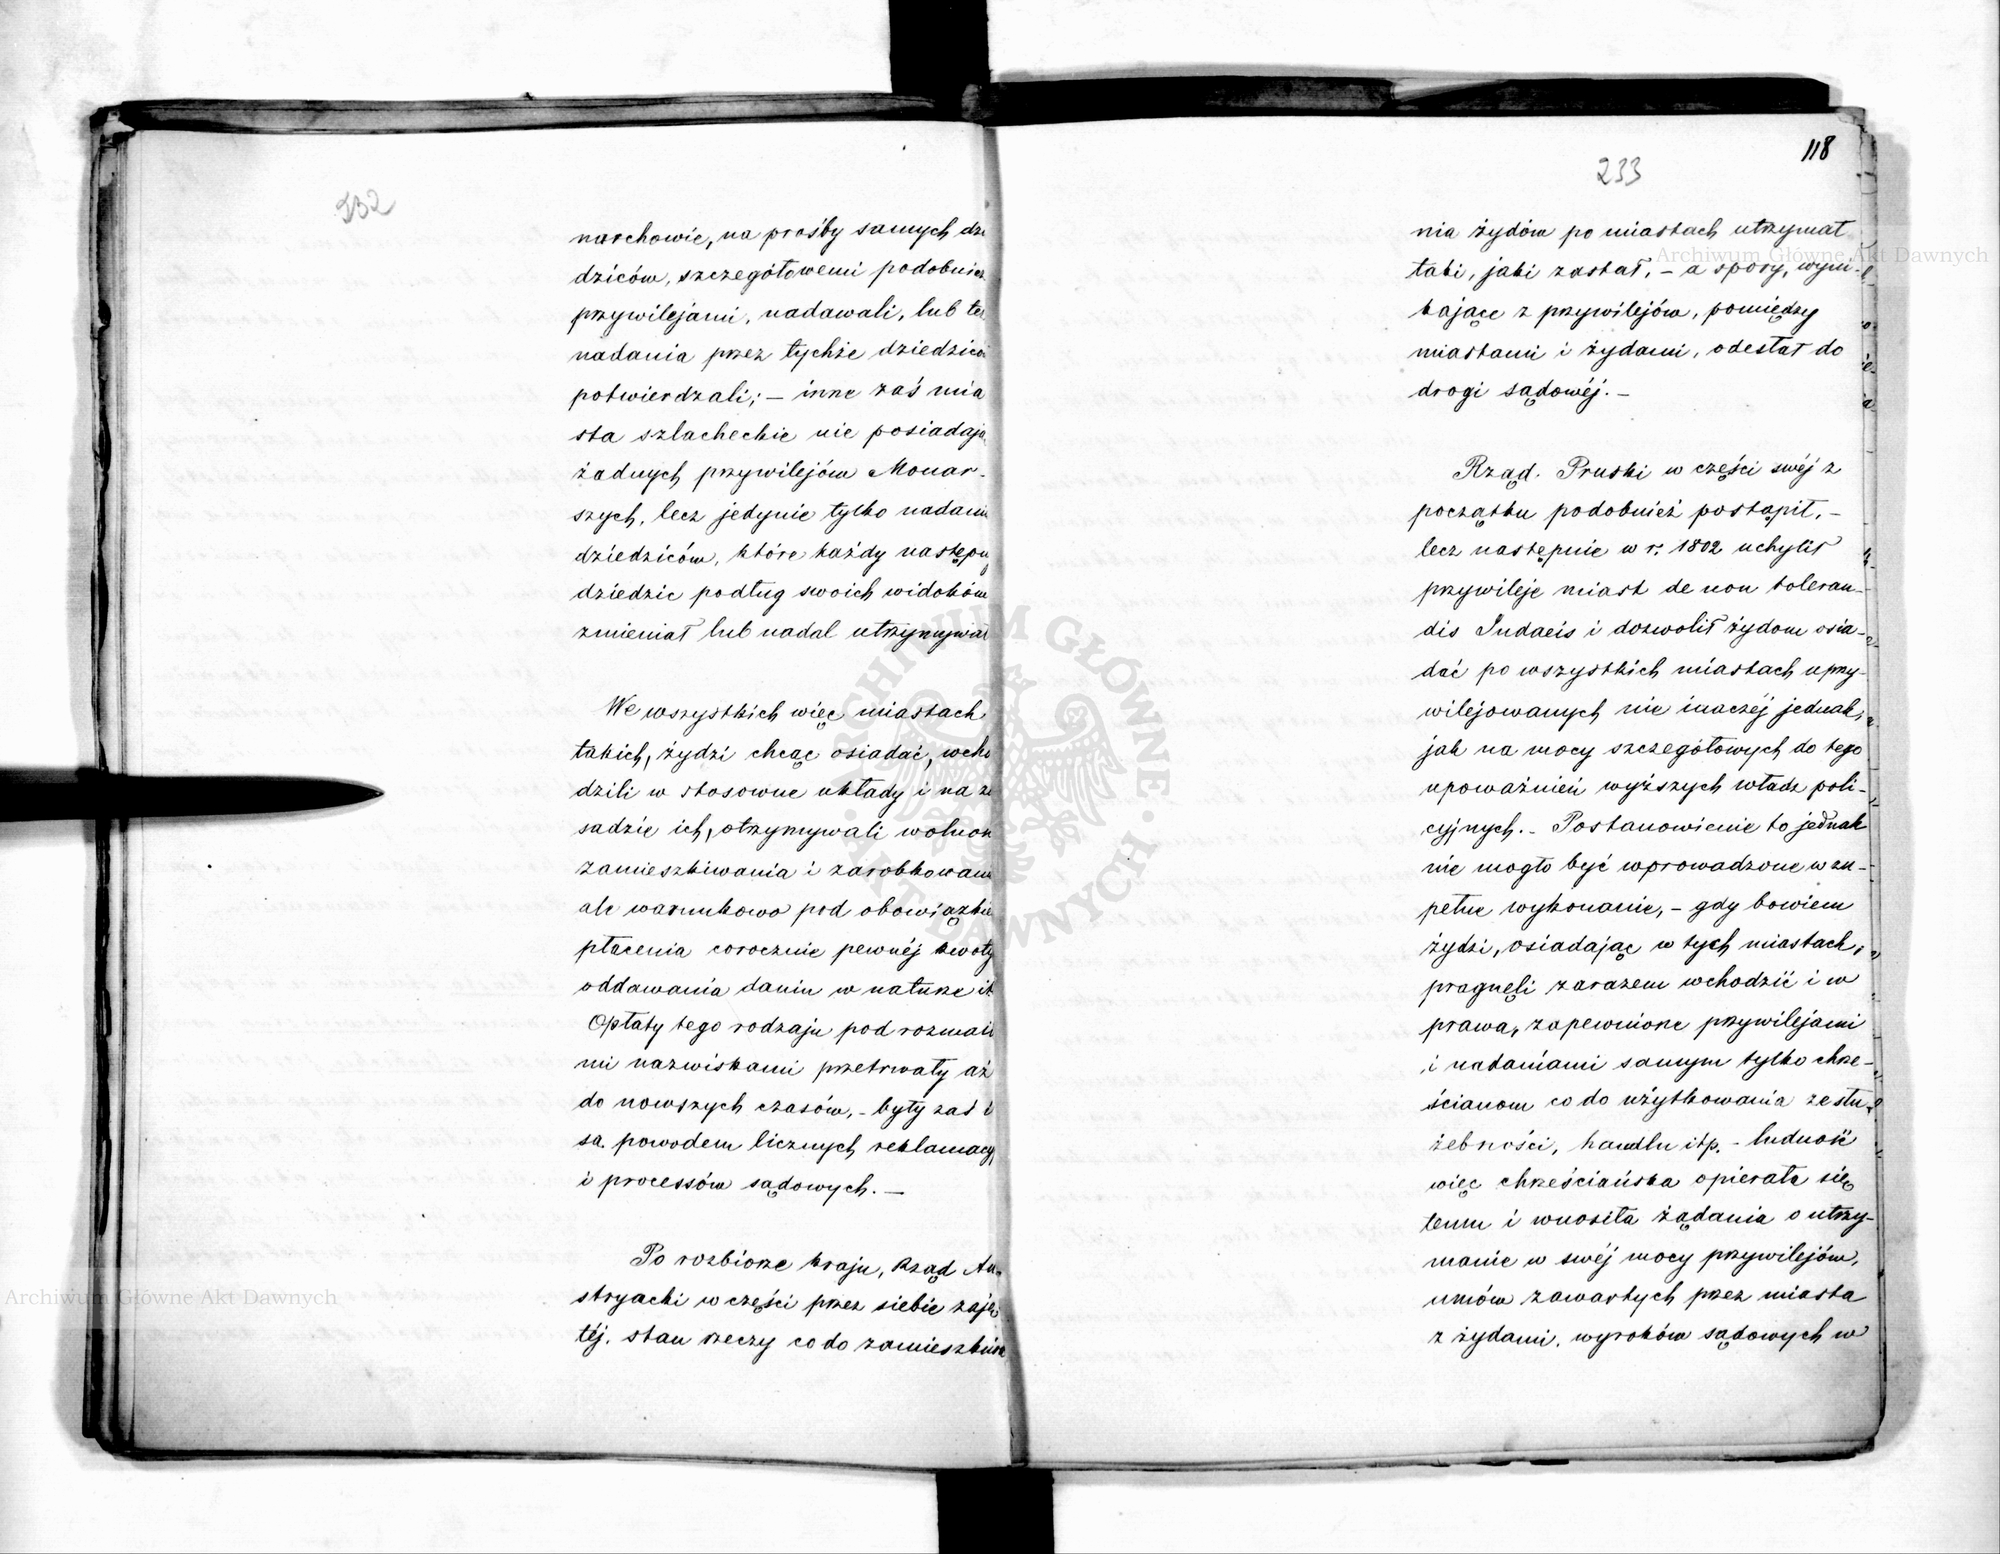 232
narchowie, na prośby samych dzie
dziców, szczegółowemi podobnież
przywilejami, nadawali, lub też
nadania przez tychże dziedziców
potwierdzali; – inne zaś mia
sta szlacheckie nie posiadają
żadnych przywilejów Monar-
szych, lecz jedynie tylko nadania
dziedziców, które każdy następny
dziedzic podług swoich widoków
zmieniał lub nadal utrzymywał
We wszystkich więc miastach
takich, żydzi chcąc osiadać, wcho
dzili w stosowne układy i na za
sadzie ich, otrzymywali wolność
zamieszkiwania i zarobkowania
ale warunkowo pod obowiązkiem
płacenia corocznie pewnéj kwoty
oddawania danin w naturze it
Opłaty tego rodzaju pod rozmaite
mi nazwiskami przetrwały aż
do nowszych czasów, – były zaś i
są powodem licznych reklamacyj
i processów sądowych. –
Po rozbiorze kraju, Rząd Au-
stryacki w części przez siebie zaję
téj, stan rzeczy co do zamieszkiwa
118
233
nia żydów po miastach utrzymał
taki, jaki zastał, – a spory, wyni-
kające z przywilejów, pomiędzy
miastami i żydami, odesłał do
drogi sądowéj. –
Rząd Pruski w części swéj z
początku podobnież postąpił, –
lecz następnie w r. 1802 uchylił
przywileje miast de non toleran-
dis Judaeis i dozwolił żydom osia-
dać po wszystkich miastach uprzy-
wilejowanych nie inaczéj jednak,
jak na mocy szczegółowych do tego
upoważnień wyższych władz poli-
cyjnych. – Postanowienie to jednak
nie mogło być wprowadzone w zu-
pełne wykonanie, – gdy bowiem
żydzi, osiadając w tych miastach,
pragnęli zarazem wchodzić i w
prawa, zapewnione przywilejami
i nadaniami samym tylko chrze-
ścianom co do użytkowania ze słu-
żebności, handlu itp. – ludność
więc chrześciańska opierała się
temu i wnosiła żądania o utrzy-
manie w swéj mocy przywilejów,
umów zawartych przez miasta
z żydami, wyroków sądowych w
Archiwum Główne Akt Dawnych
Archiwum Główne Akt Dawnych
ARCHIWUM GŁÓWNE AKT DAWNYCH